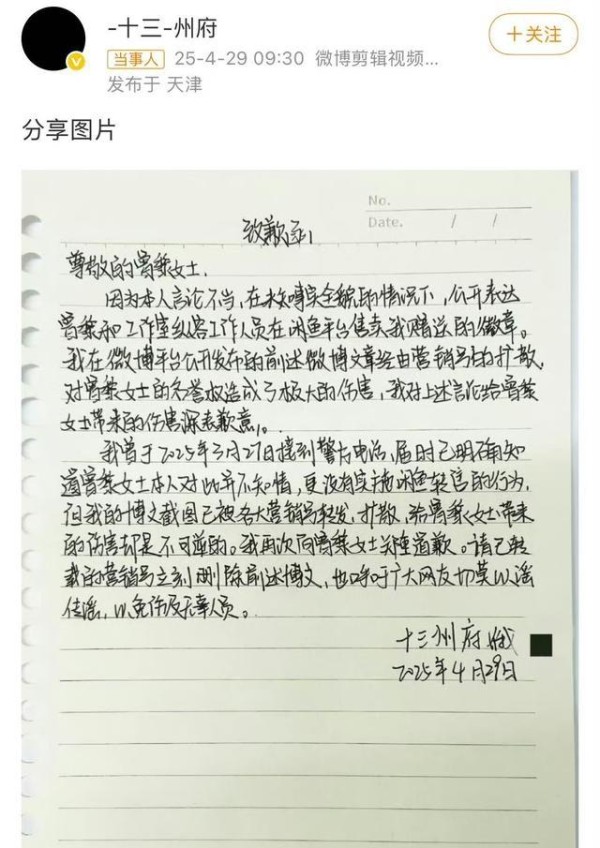 -十三-州府
+关注
当事人 25-4-29 09:30 微博剪辑视频...
发布于 天津
分享图片
No.
Date. / /
致歉函
尊敬的曾黎女士.
因为本人言论不当,在未知全貌的情况下,公开表达
曾黎和工作室纵容工作人员在闲鱼平台售卖我赠送的徽章。
我在微博平台公开发布的前述微博文章经由营销号的扩散,
对曾黎女士的名誉权造成了极大的伤害,我对上述言论给曾黎
女士带来的伤害深表歉意。
我曾于2025年3月27日接到警方电话,届时已明确知
道曾黎女士本人对此并不知情,更没有实施闲鱼转售的行为,
但我的博文截图已被各大营销号转发、扩散,给曾黎女士带来
的伤害却是不可逆的。我再次向曾黎女士郑重道歉。请已转
载的营销号立刻删除前述博文,也呼吁广大网友切莫以谣
传谣,以免伤及无辜人员。
十三州府
2025年4月29日